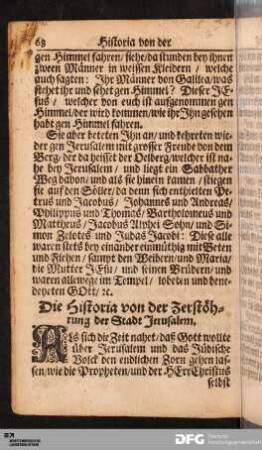 68 Historia von der
gen Himmel fahren / siehe / da stunden bey ihnen
zween Männer in weissen Kleidern / welche
auch sagten: Ihr Männer von Galilea / was
stehet ihr und sehet gen Himmel? Dieser JE-
sus / welcher von euch ist aufgenommen gen
Himmel / der wird kommen / wie ihr Ihn gesehen
habt gen Himmel fahren.
Sie aber beteten Ihn an / und kehreten wie-
der gen Jerusalem mit grosser Freude von dem
Berg / der da heisset der Oelberg / welcher ist na-
he bey Jerusalem / und liegt ein Sabbather
Weg davon / und als sie hinein kamen / stiegen
sie auf den Söller / da denn sich enthielten Pe-
trus und Jacobus / Johannes und Andreas /
Philippus und Thomas / Bartholomeus und
Mattheus / Jacobus Alphei Sohn / und Si-
mon Zelotes und Judas Jacobi: Diese alle
waren stets bey einander einmüthig mit Beten
und Flehen / sampt den Weibern / und Maria /
die Mutter JEsu / und seinen Brüdern / und
waren allewege im Tempel / lobeten und bene-
deyeten GOtt / ꝛc.
Die Historia von der Zerstöh-
rung der Stadt Jerusalem.
ALs sich die Zeit nahet / daß Gott wollte
über Jerusalem und das Jüdische
Volck den endlichen Zorn gehen las-
sen, wie die Propheten / und der HErr Christus
selbst
DFG